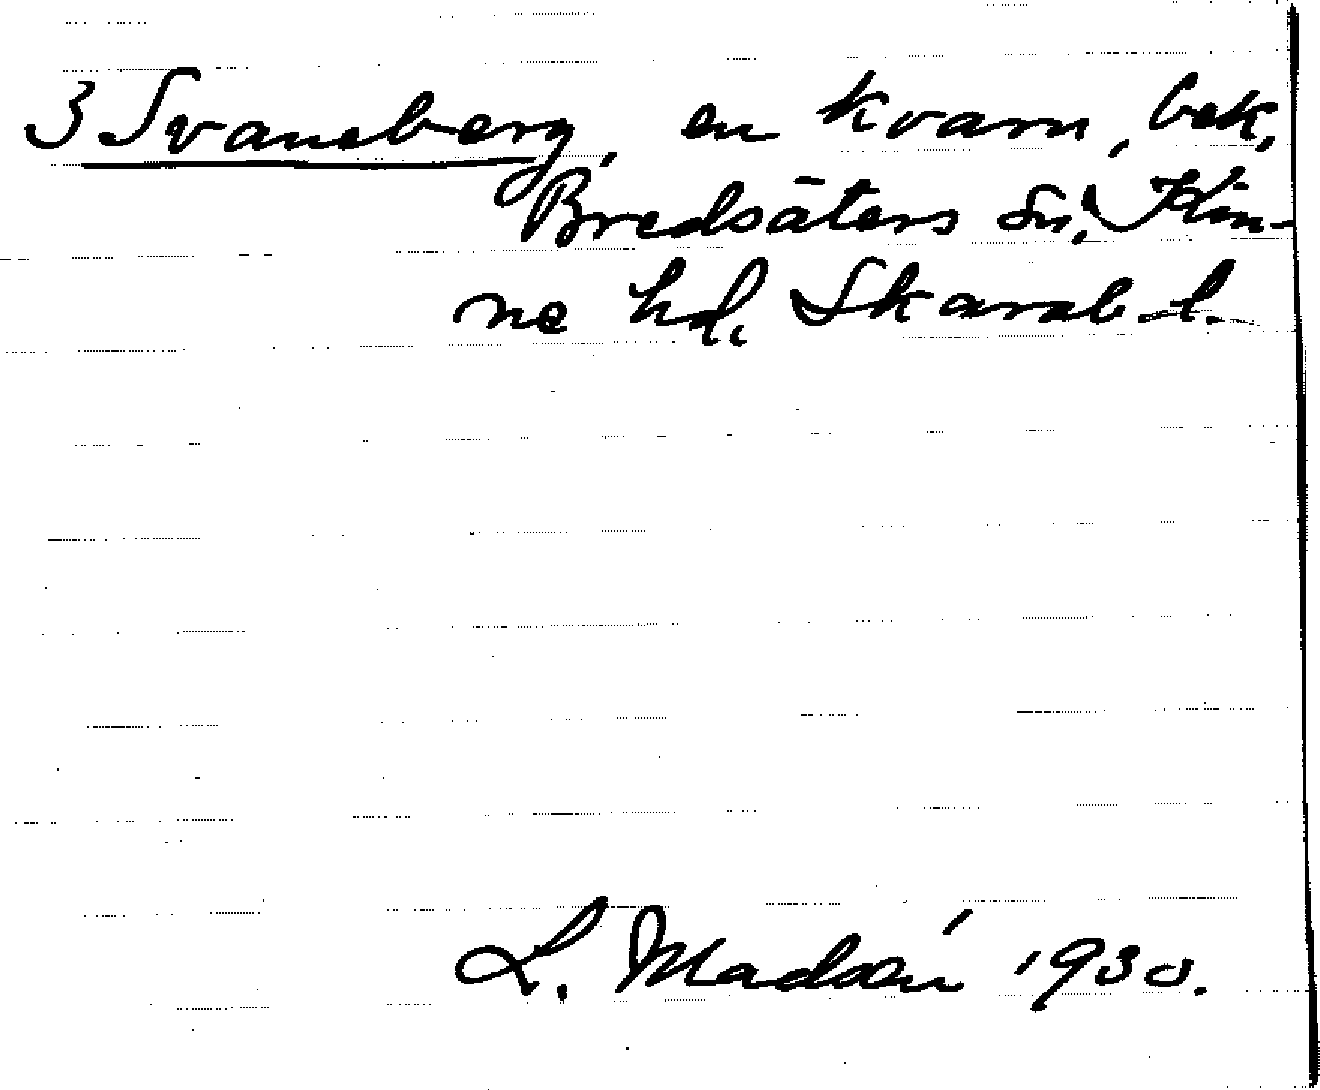 3 Svaneberg, en kvarn, bek,
Bredsäters sn, Kin-
ne hd. Skarab. l.
L. Madsén 1930.